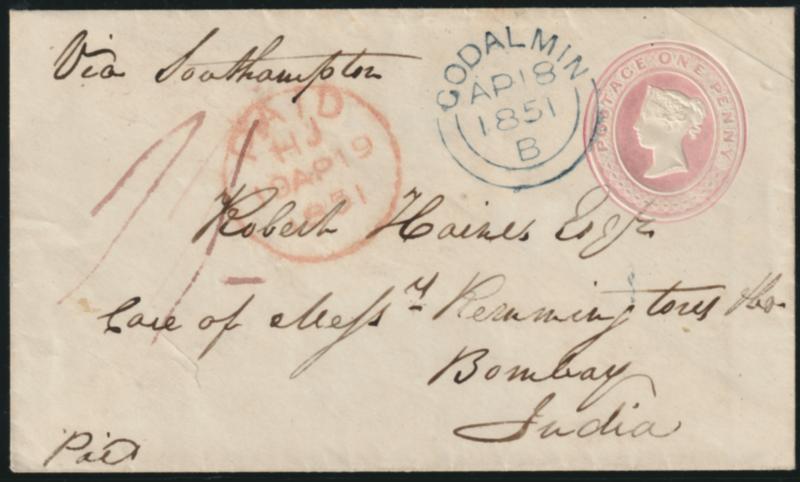 Via Southampton
GODALMIN
AP 18
1851
B
POSTAGE ONE PENNY
PAID
HJ
19 AP 19
1851
1/-
Robert Haines Esqre
Care of Messrs Remmingtons & Co.
Bombay
India
Paid